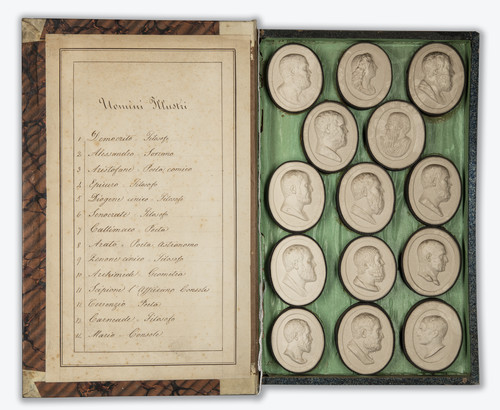 Uomini Illustri
1 Democrito - Filosofo
2. Alessandro - Sovrano
3 Aristofane - Poeta comico
4 Epicuro - Filosofo
5 Diogene cinico - Filosofo
6 Senocrate - Filosofo
7 Callimaco - Poeta
8 Arato - Poeta Astronomo
9 Zenone - Filosofo
10 Archimide - Geometra
11 Scipione l'Affricano Console
12 Terenzio - Poeta
13 Carneade - Filosofo
14 Mario - Console